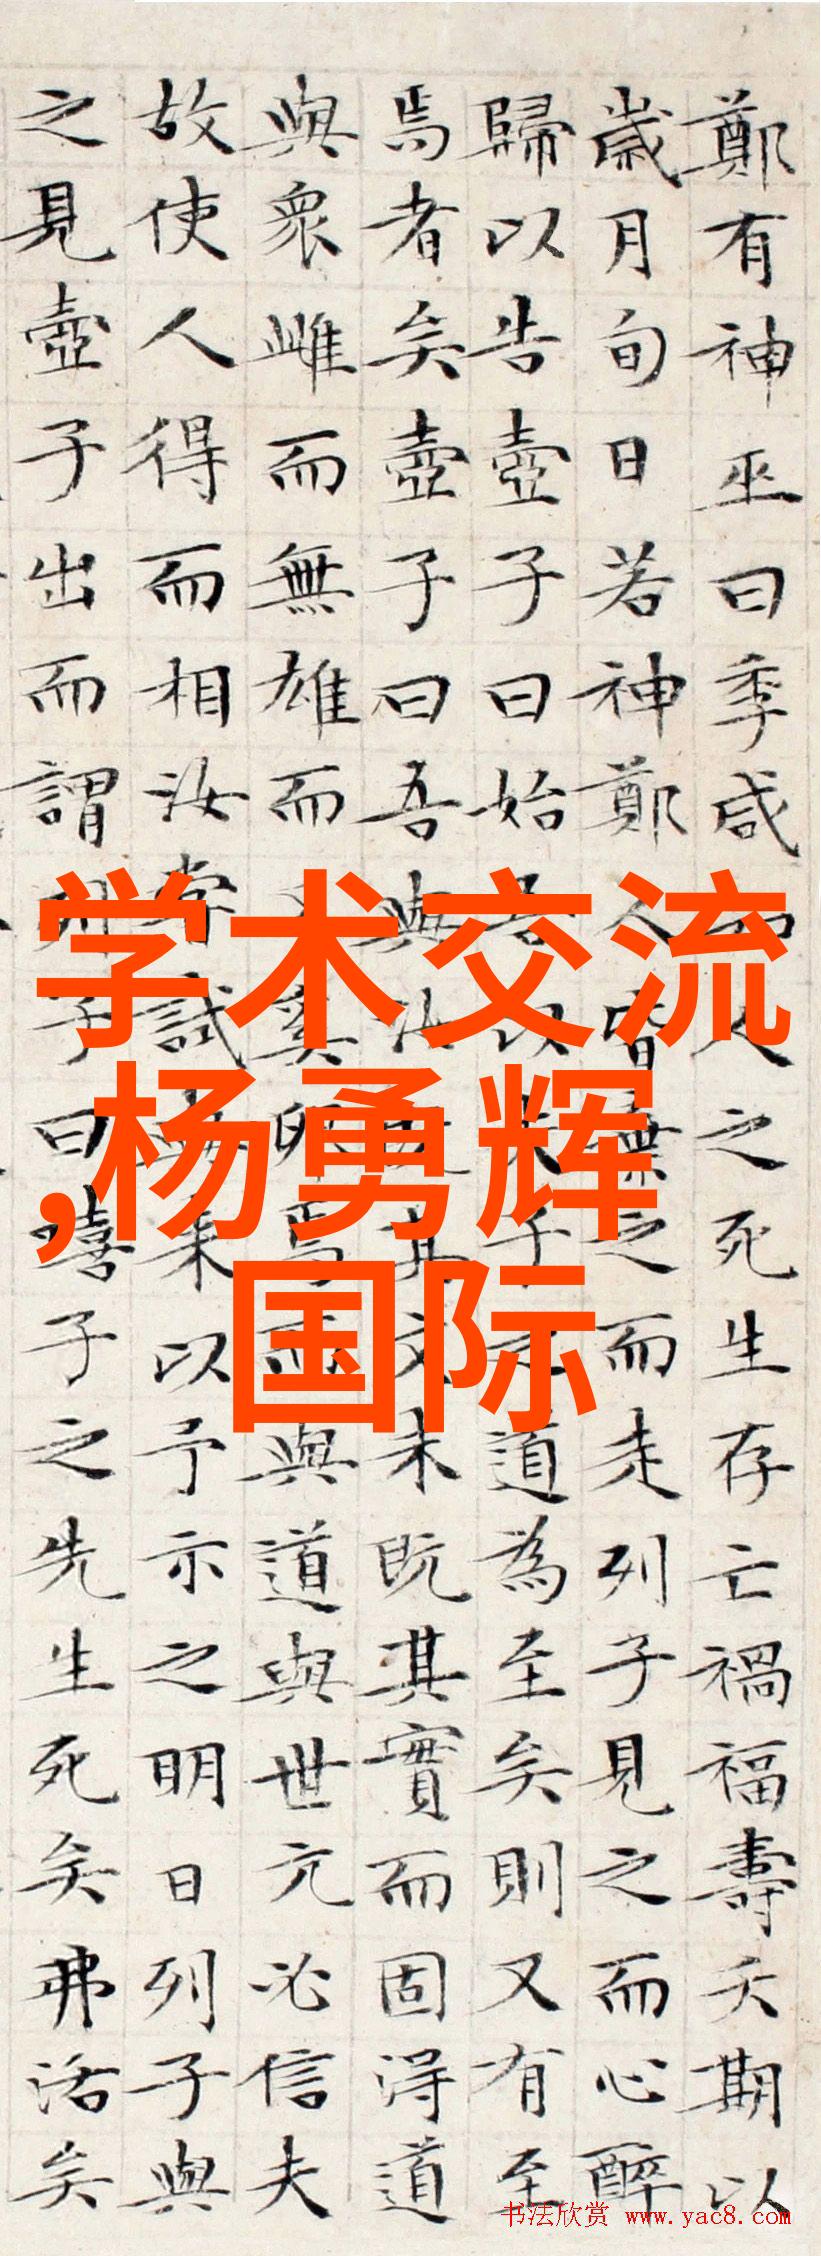 鄭有神巫曰季咸知人之死生存亡禍福壽夭期以
歲月旬日若神鄭人皆之而走列子見之而心醉
歸以告壺子曰始吾以夫子之道為至矣則又有至
焉者矣壺子曰吾與汝其文未既其實而固得道
與衆雌而無雄而又奚卵焉而與道與世亢必信夫
故使人得而相汝嘗試與来以予示之明日列子與
之見壺子出而謂列子曰嘻子之先生死矣弗活矣
学术交流
,杨勇辉
国际
书法欣赏 www.yac8.com